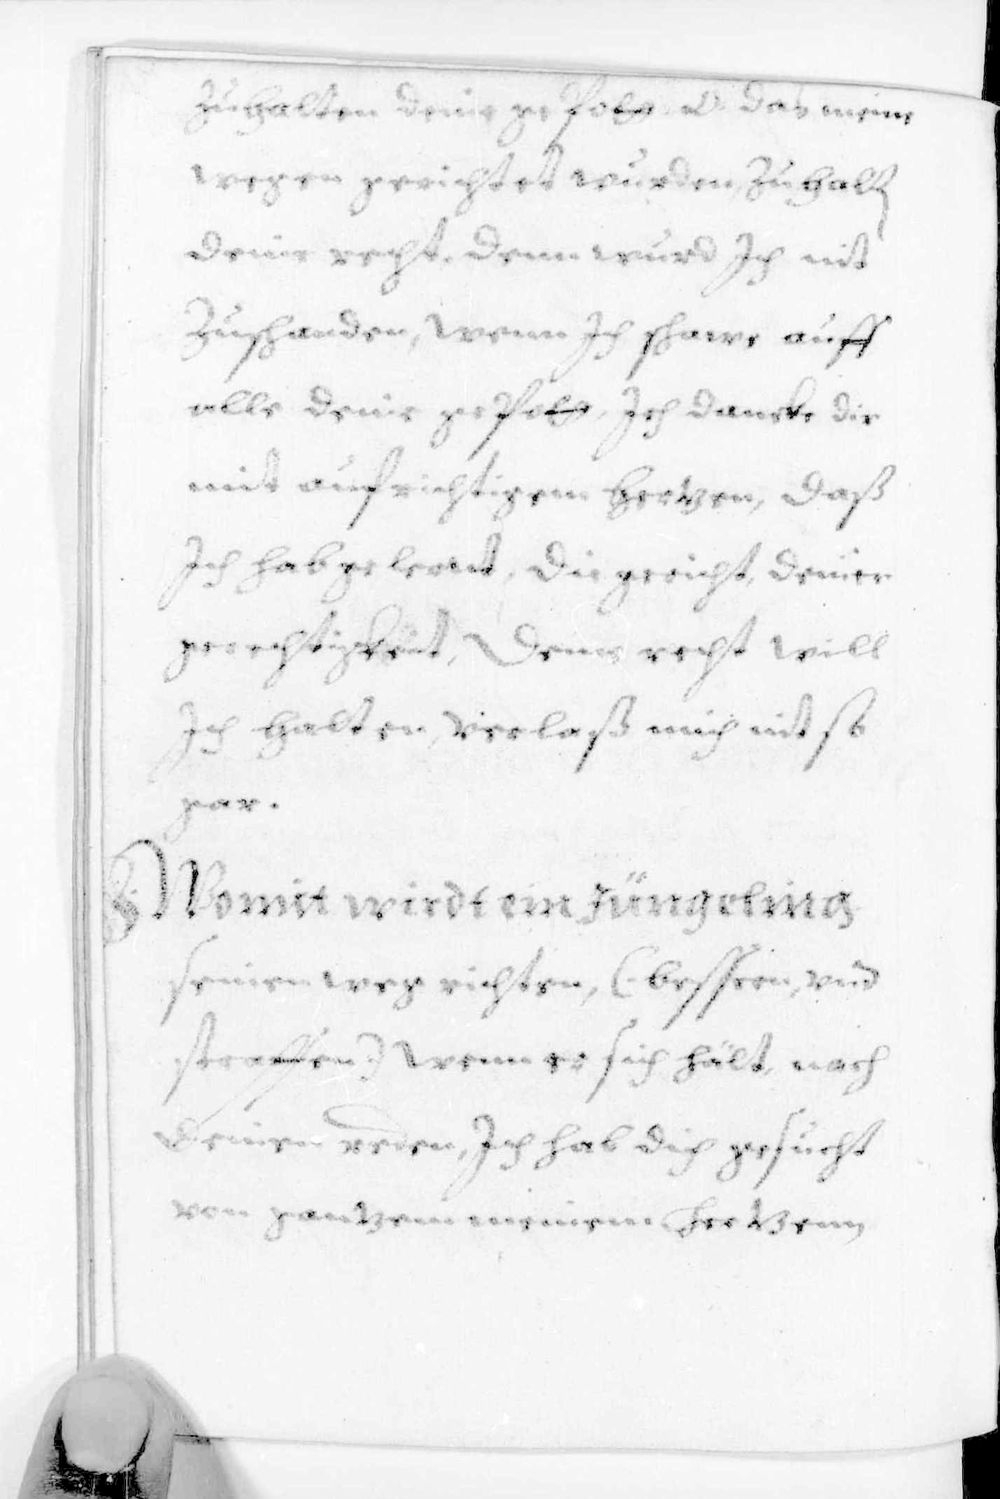 Zuhalten deine gesetz. O. das meine
wegen gerichtet wurden, Zuhalt͂
deine recht. denn wurd Ich nit
Zuschanden, wenn Ich schawe auff
alle deine gesetz, Ich dancke dir
mit aufrichtigem hertzen, daß
Ich hab gelernt, die gericht, deiner
gerechtigkeit, Deine recht will
Ich halten, verlaß mich nit so
gar.
Womit wirdt ein Jüngeling
seinen weg richten, (bessern, vnd
straffen) wenn er sich hält, nach
deinen reden, Ich hab dich gesucht
von gantzem meinem hertzenn